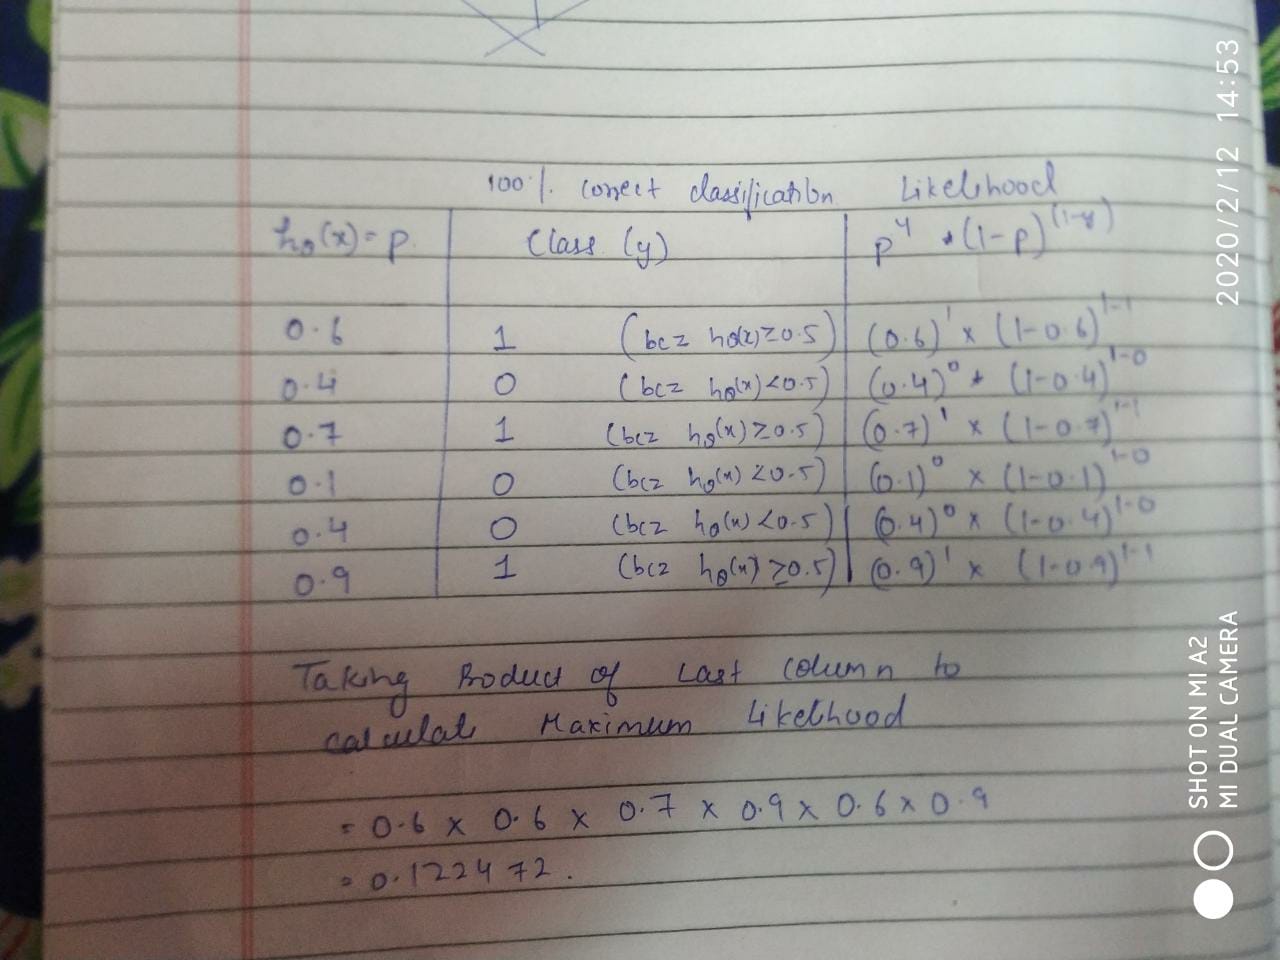 100% correct classification Likelihood
hθ(x) = p. Class (y) p^y * (1-p)^(1-y)
0.6 1 (bcz hθ(x)≥0.5) (0.6)^1 × (1-0.6)^1-1
0.4 0 (bcz hθ(x)<0.5) (0.4)^0 * (1-0.4)^1-0
0.7 1 (bcz hθ(x)≥0.5) (0.7)^1 × (1-0.7)^1-1
0.1 0 (bcz hθ(x)<0.5) (0.1)^0 × (1-0.1)^1-0
0.4 0 (bcz hθ(x)<0.5) (0.4)^0 × (1-0.4)^1-0
0.9 1 (bcz hθ(x)≥0.5) (0.9)^1 × (1-0.9)^1-1
Taking Product of Last column to
calculate Maximum Likelihood
= 0.6 × 0.6 × 0.7 × 0.9 × 0.6 × 0.9
= 0.122472.
2020/2/12 14:53
SHOT ON MI A2
MI DUAL CAMERA